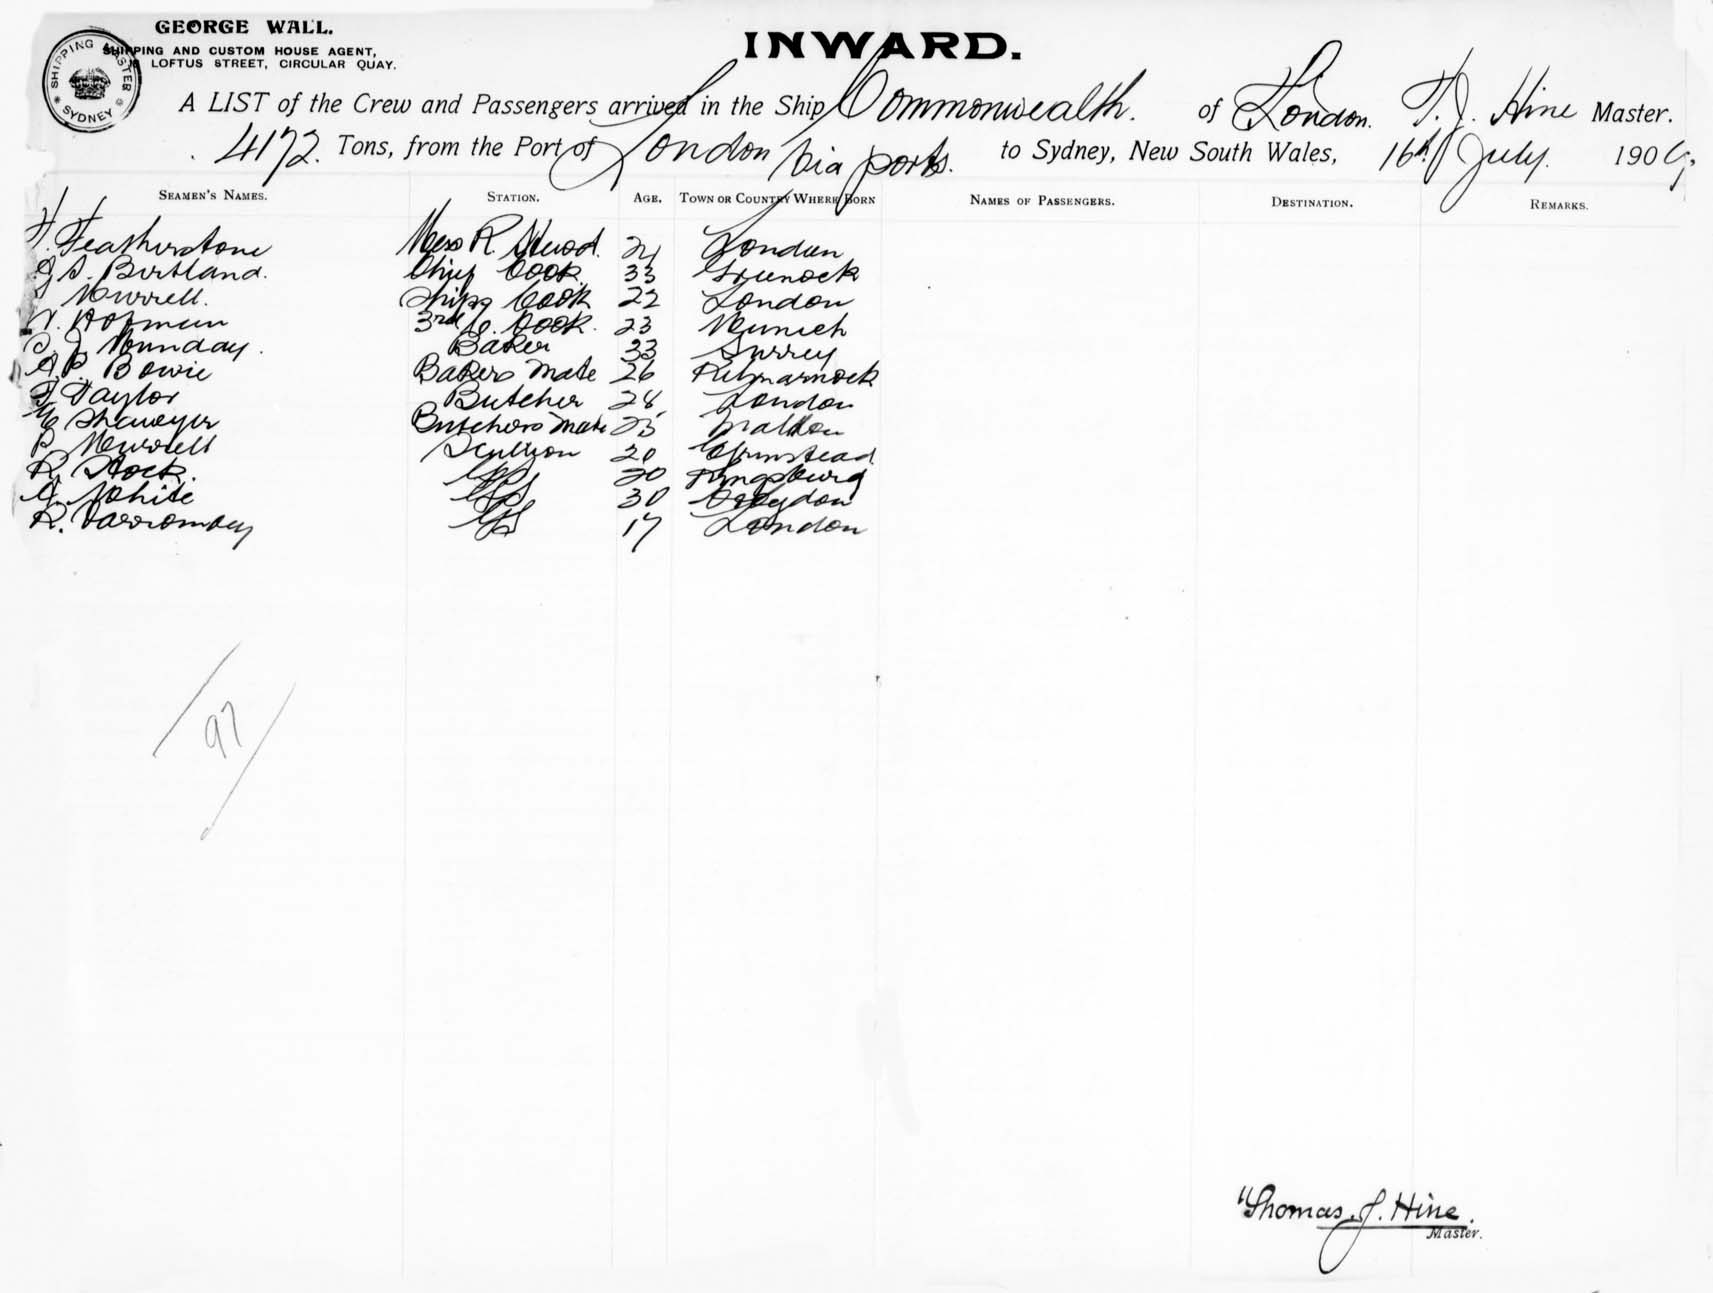 GEORGE WALL.
SHIPPING AND CUSTOM HOUSE AGENT,
LOFTUS STREET, CIRCULAR QUAY.
SHIPPING MASTER SYDNEY
INWARD.
A LIST of the Crew and Passengers arrived in the Ship Commonwealth. of London. T. J. Hine Master.
4172. Tons, from the Port of London via ports. to Sydney, New South Wales, 16th July. 1909,
SEAMEN'S NAMES. STATION. AGE. TOWN OR COUNTRY WHERE BORN NAMES OF PASSENGERS. DESTINATION. REMARKS.
Featherstone Mess R. Stewd. 24 London
S. Birtland. Chief Cook 33 Greenock
Murrell. Ships Cook 22 London
Hofman 3rd Cook. 23 Munich
J Munday. Baker 33 Surrey
P. Bowie Bakers Mate 26 Kilmarnock
F Taylor Butcher 28 London
Butchers Mate 25 Maldon
Murrell Scullion 20
R. Stock. GS 20 Kingsbury
G. White GS 30 Croydon
R. GS 17 London
97
Thomas. J. Hine.
Master.